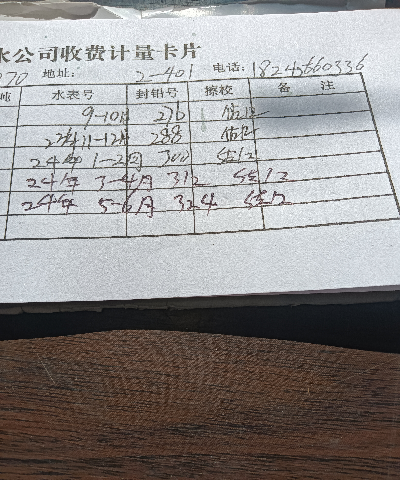 水公司收费计量卡片
70 地址: 2-401 电话: 18245660336
吨 水表号 封铅号 擦校 备 注
9-10月 276 估12
23年11-12月 288 估12
24年 1-2月 300 估12
24年 3-4月 312 估12
24年 5-6月 324 估12